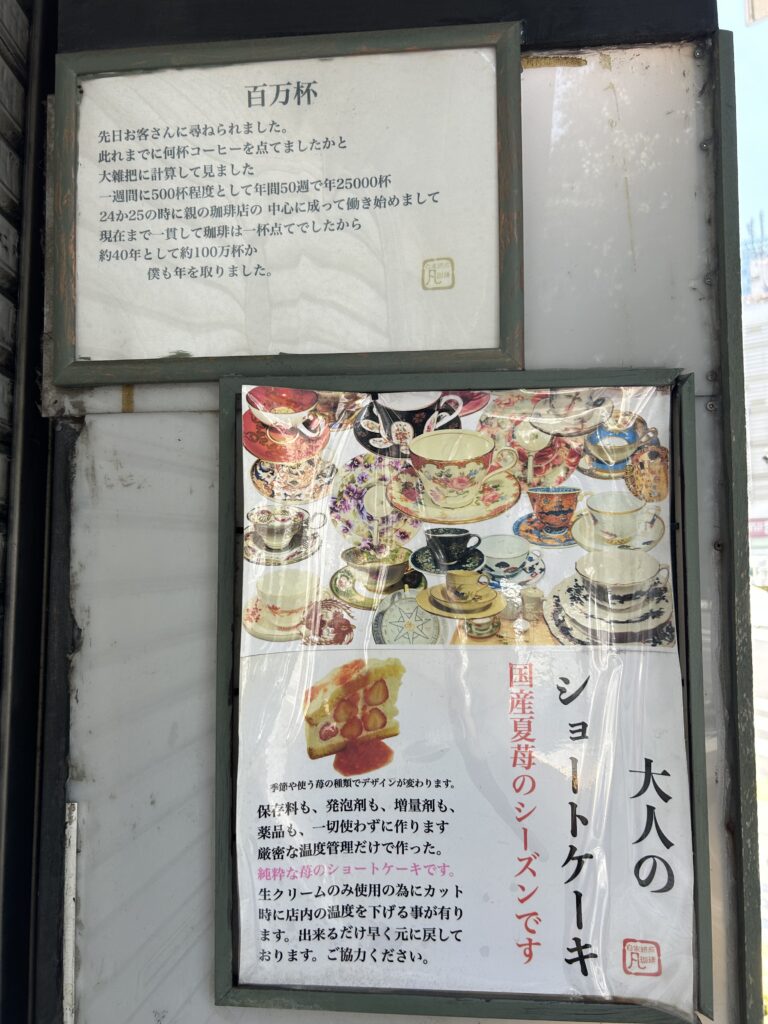 百万杯
先日お客さんに尋ねられました。
此れまでに何杯コーヒーを点てましたかと
大雑把に計算して見ました
一週間に500杯程度として年間50週で年25000杯
24か25の時に親の珈琲店の 中心に成って働き始めまして
現在まで一貫して珈琲は一杯点てでしたから
約40年として約100万杯か
僕も年を取りました。
自家焙煎
凡
珈琲
大人の
ショートケーキ
国産夏苺のシーズンです
季節や使う苺の種類でデザインが変わります。
保存料も、発泡剤も、増量剤も、
薬品も、一切使わずに作ります
厳密な温度管理だけで作った。
純粋な苺のショートケーキです。
生クリームのみ使用の為にカット
時に店内の温度を下げる事が有り
ます。出来るだけ早く元に戻して
おります。ご協力ください。
自家焙煎
凡
珈琲